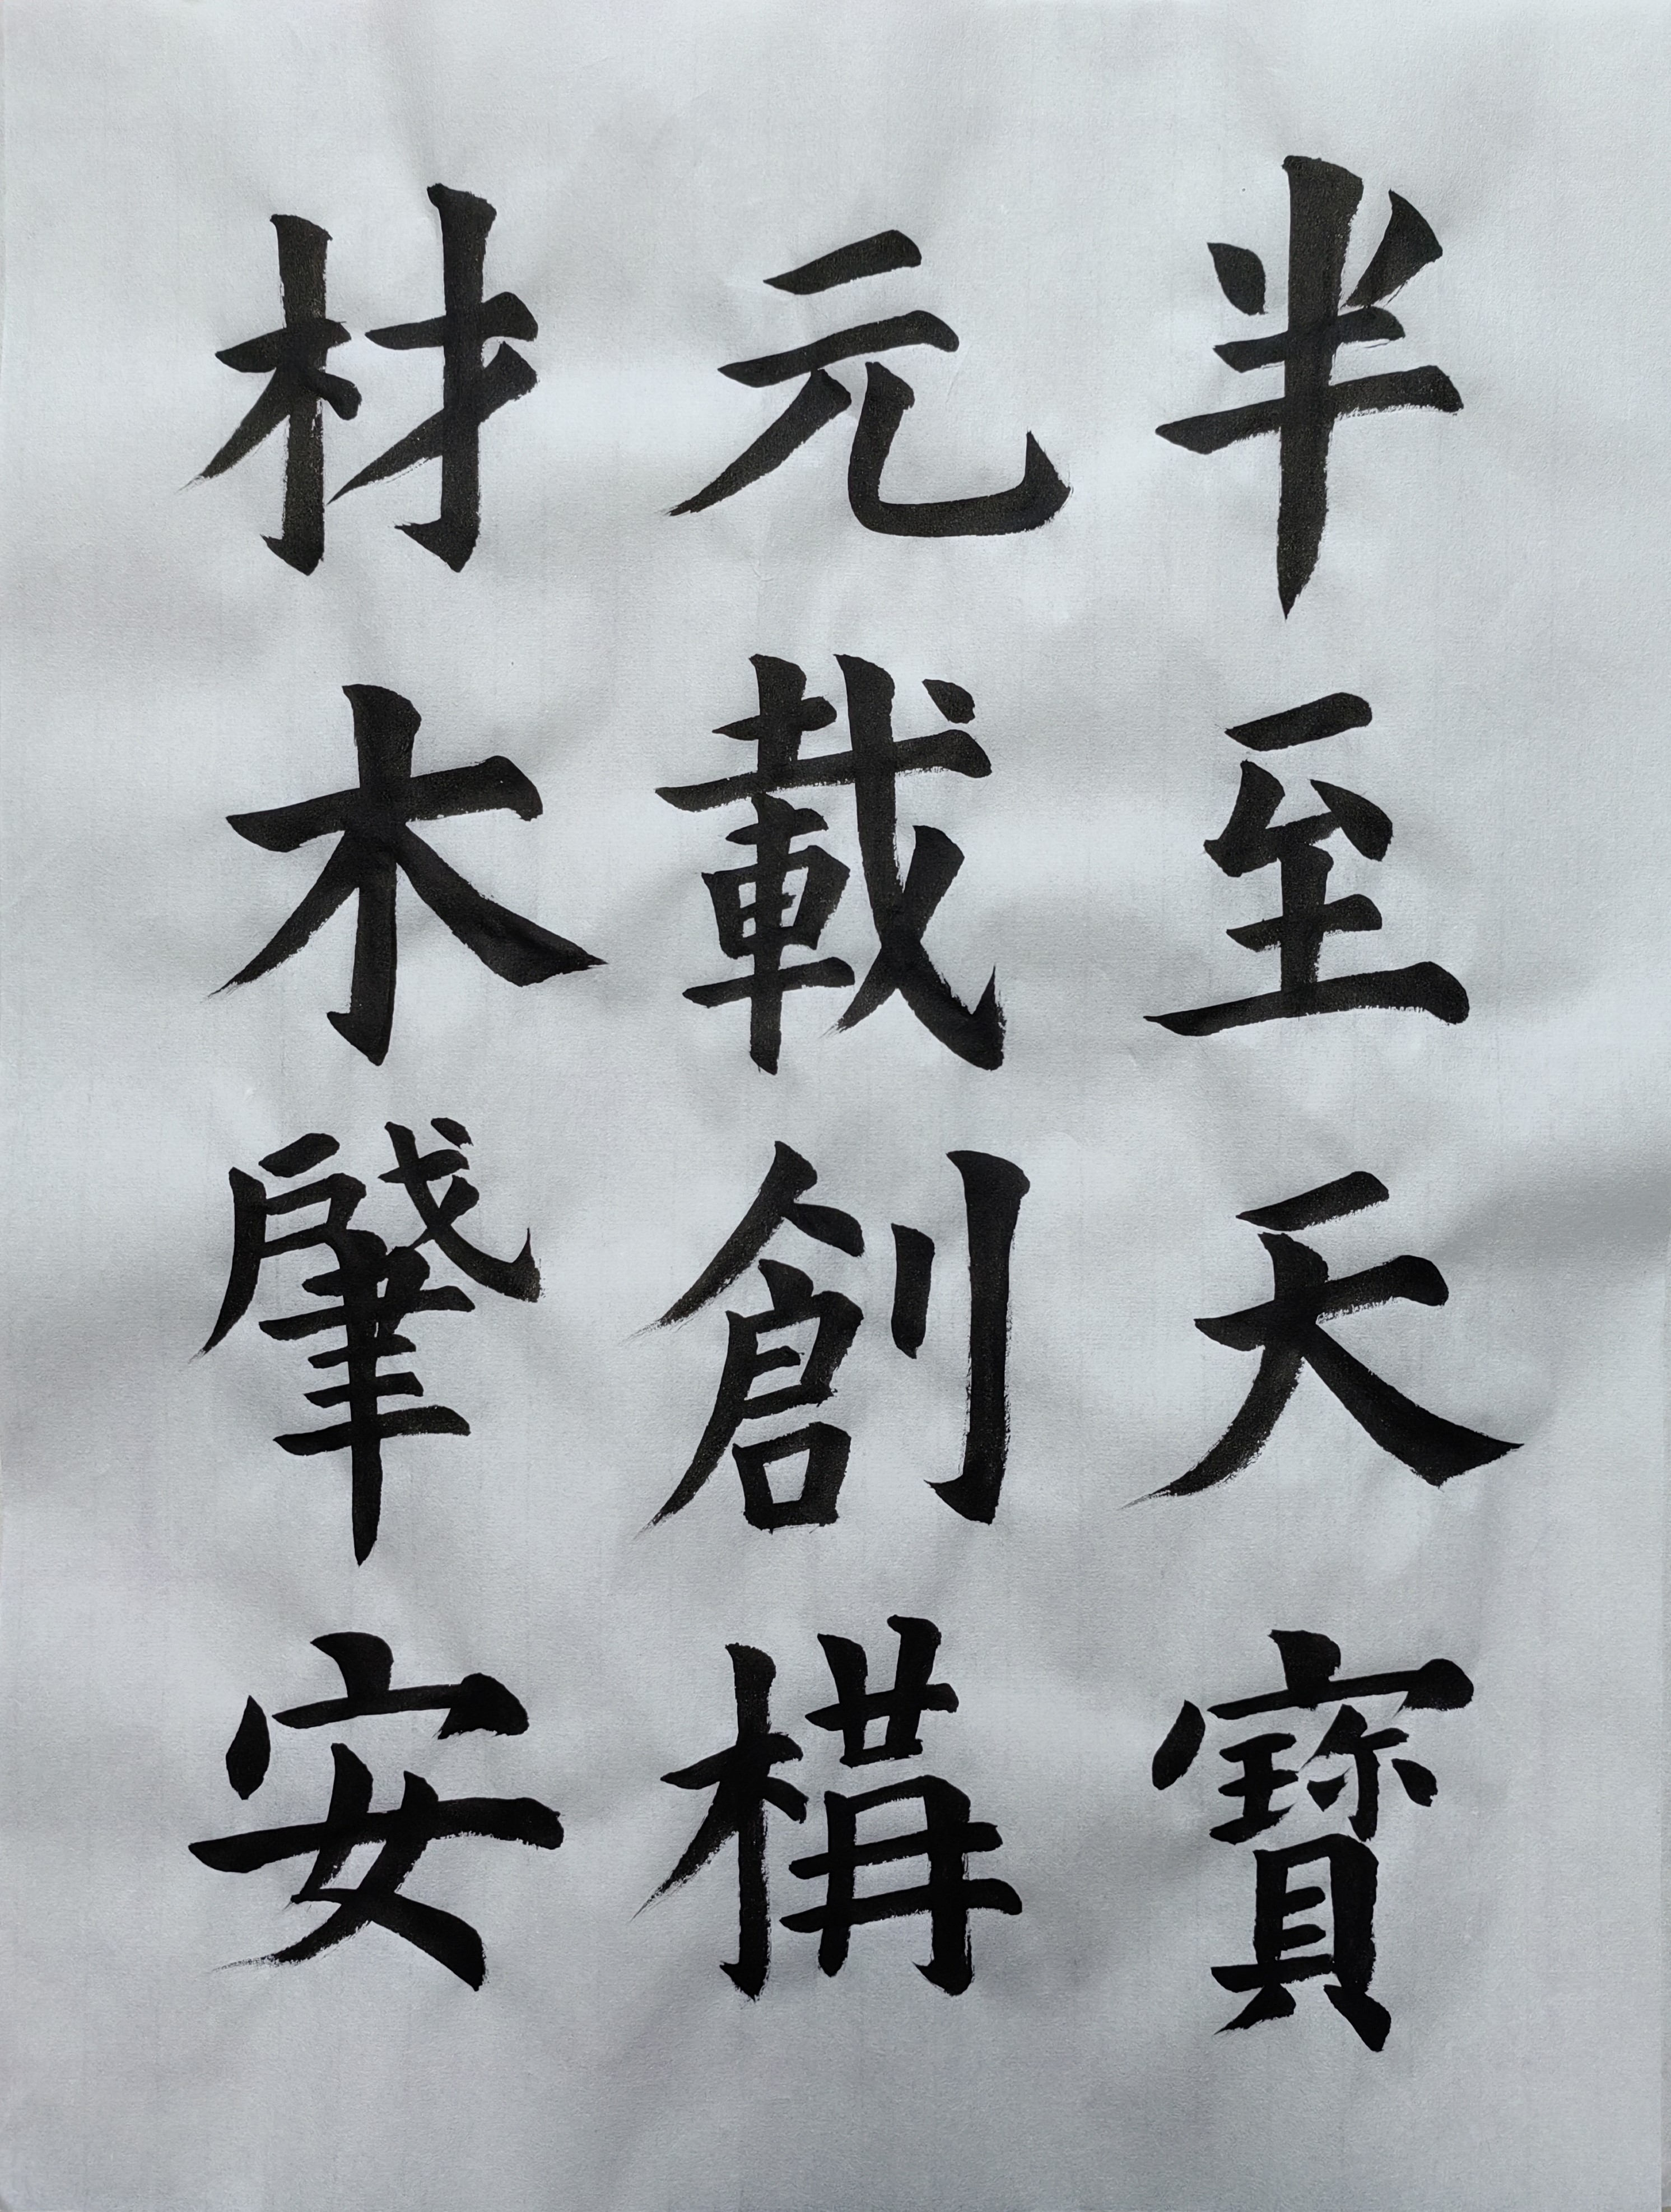 半至天寶
元載創構
材木肇安